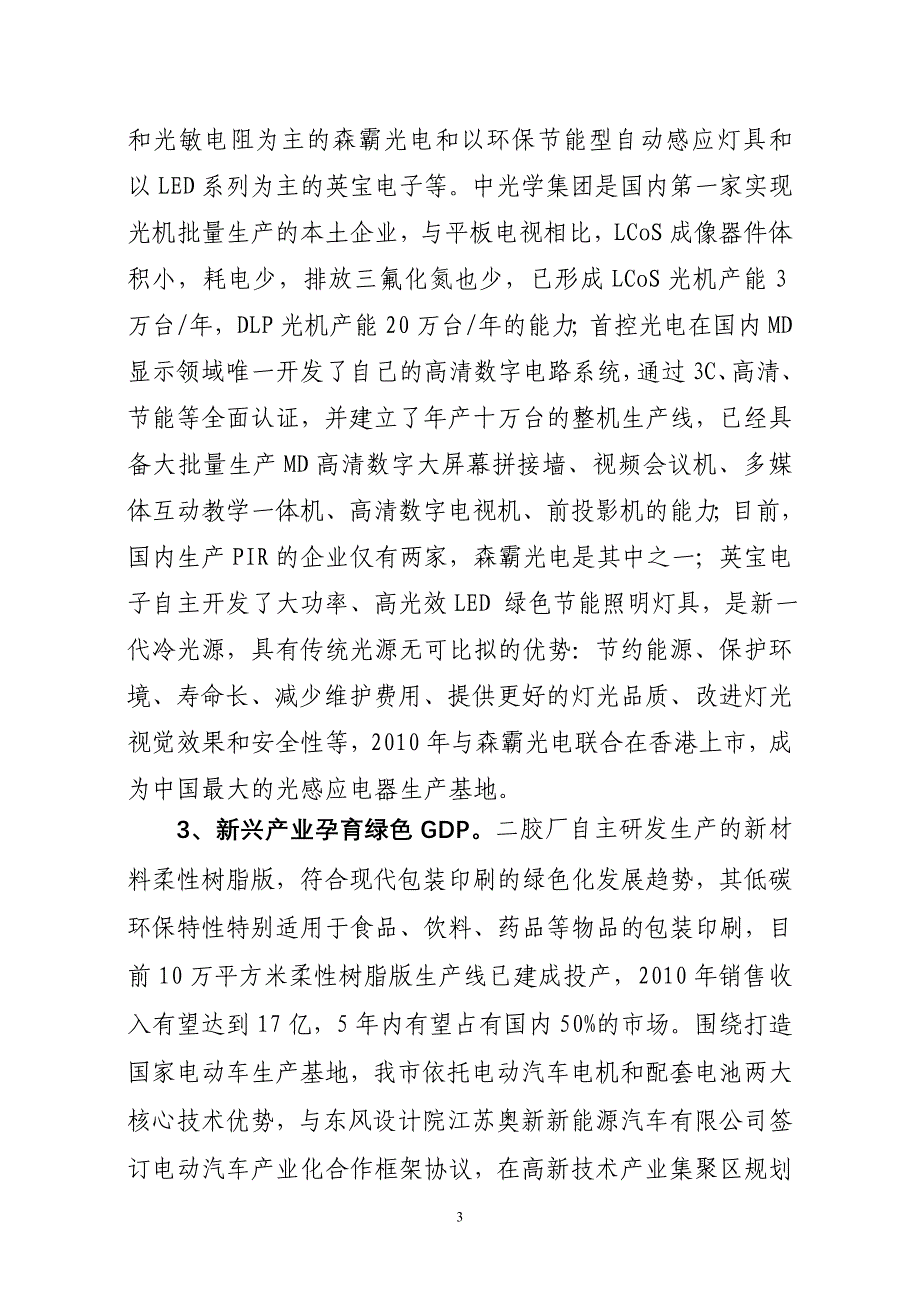 和光敏电阻为主的森霸光电和以环保节能型自动感应灯具和
以 LED 系列为主的英宝电子等。中光学集团是国内第一家实现
光机批量生产的本土企业，与平板电视相比，LCoS 成像器件体
积小，耗电少，排放三氟化氮也少，已形成 LCoS 光机产能 3
万台/年，DLP 光机产能 20 万台/年的能力；首控光电在国内 MD
显示领域唯一开发了自己的高清数字电路系统，通过 3C、高清、
节能等全面认证，并建立了年产十万台的整机生产线，已经具
备大批量生产 MD 高清数字大屏幕拼接墙、视频会议机、多媒
体互动教学一体机、高清数字电视机、前投影机的能力；目前，
国内生产 PIR 的企业仅有两家，森霸光电是其中之一；英宝电
子自主开发了大功率、高光效 LED 绿色节能照明灯具，是新一
代冷光源，具有传统光源无可比拟的优势：节约能源、保护环
境、寿命长、减少维护费用、提供更好的灯光品质、改进灯光
视觉效果和安全性等，2010 年与森霸光电联合在香港上市，成
为中国最大的光感应电器生产基地。
3、新兴产业孕育绿色 GDP。二胶厂自主研发生产的新材
料柔性树脂版，符合现代包装印刷的绿色化发展趋势，其低碳
环保特性特别适用于食品、饮料、药品等物品的包装印刷，目
前 10 万平方米柔性树脂版生产线已建成投产，2010 年销售收
入有望达到 17 亿，5 年内有望占有国内 50%的市场。围绕打造
国家电动车生产基地，我市依托电动汽车电机和配套电池两大
核心技术优势，与东风设计院江苏奥新新能源汽车有限公司签
订电动汽车产业化合作框架协议，在高新技术产业集聚区规划
3